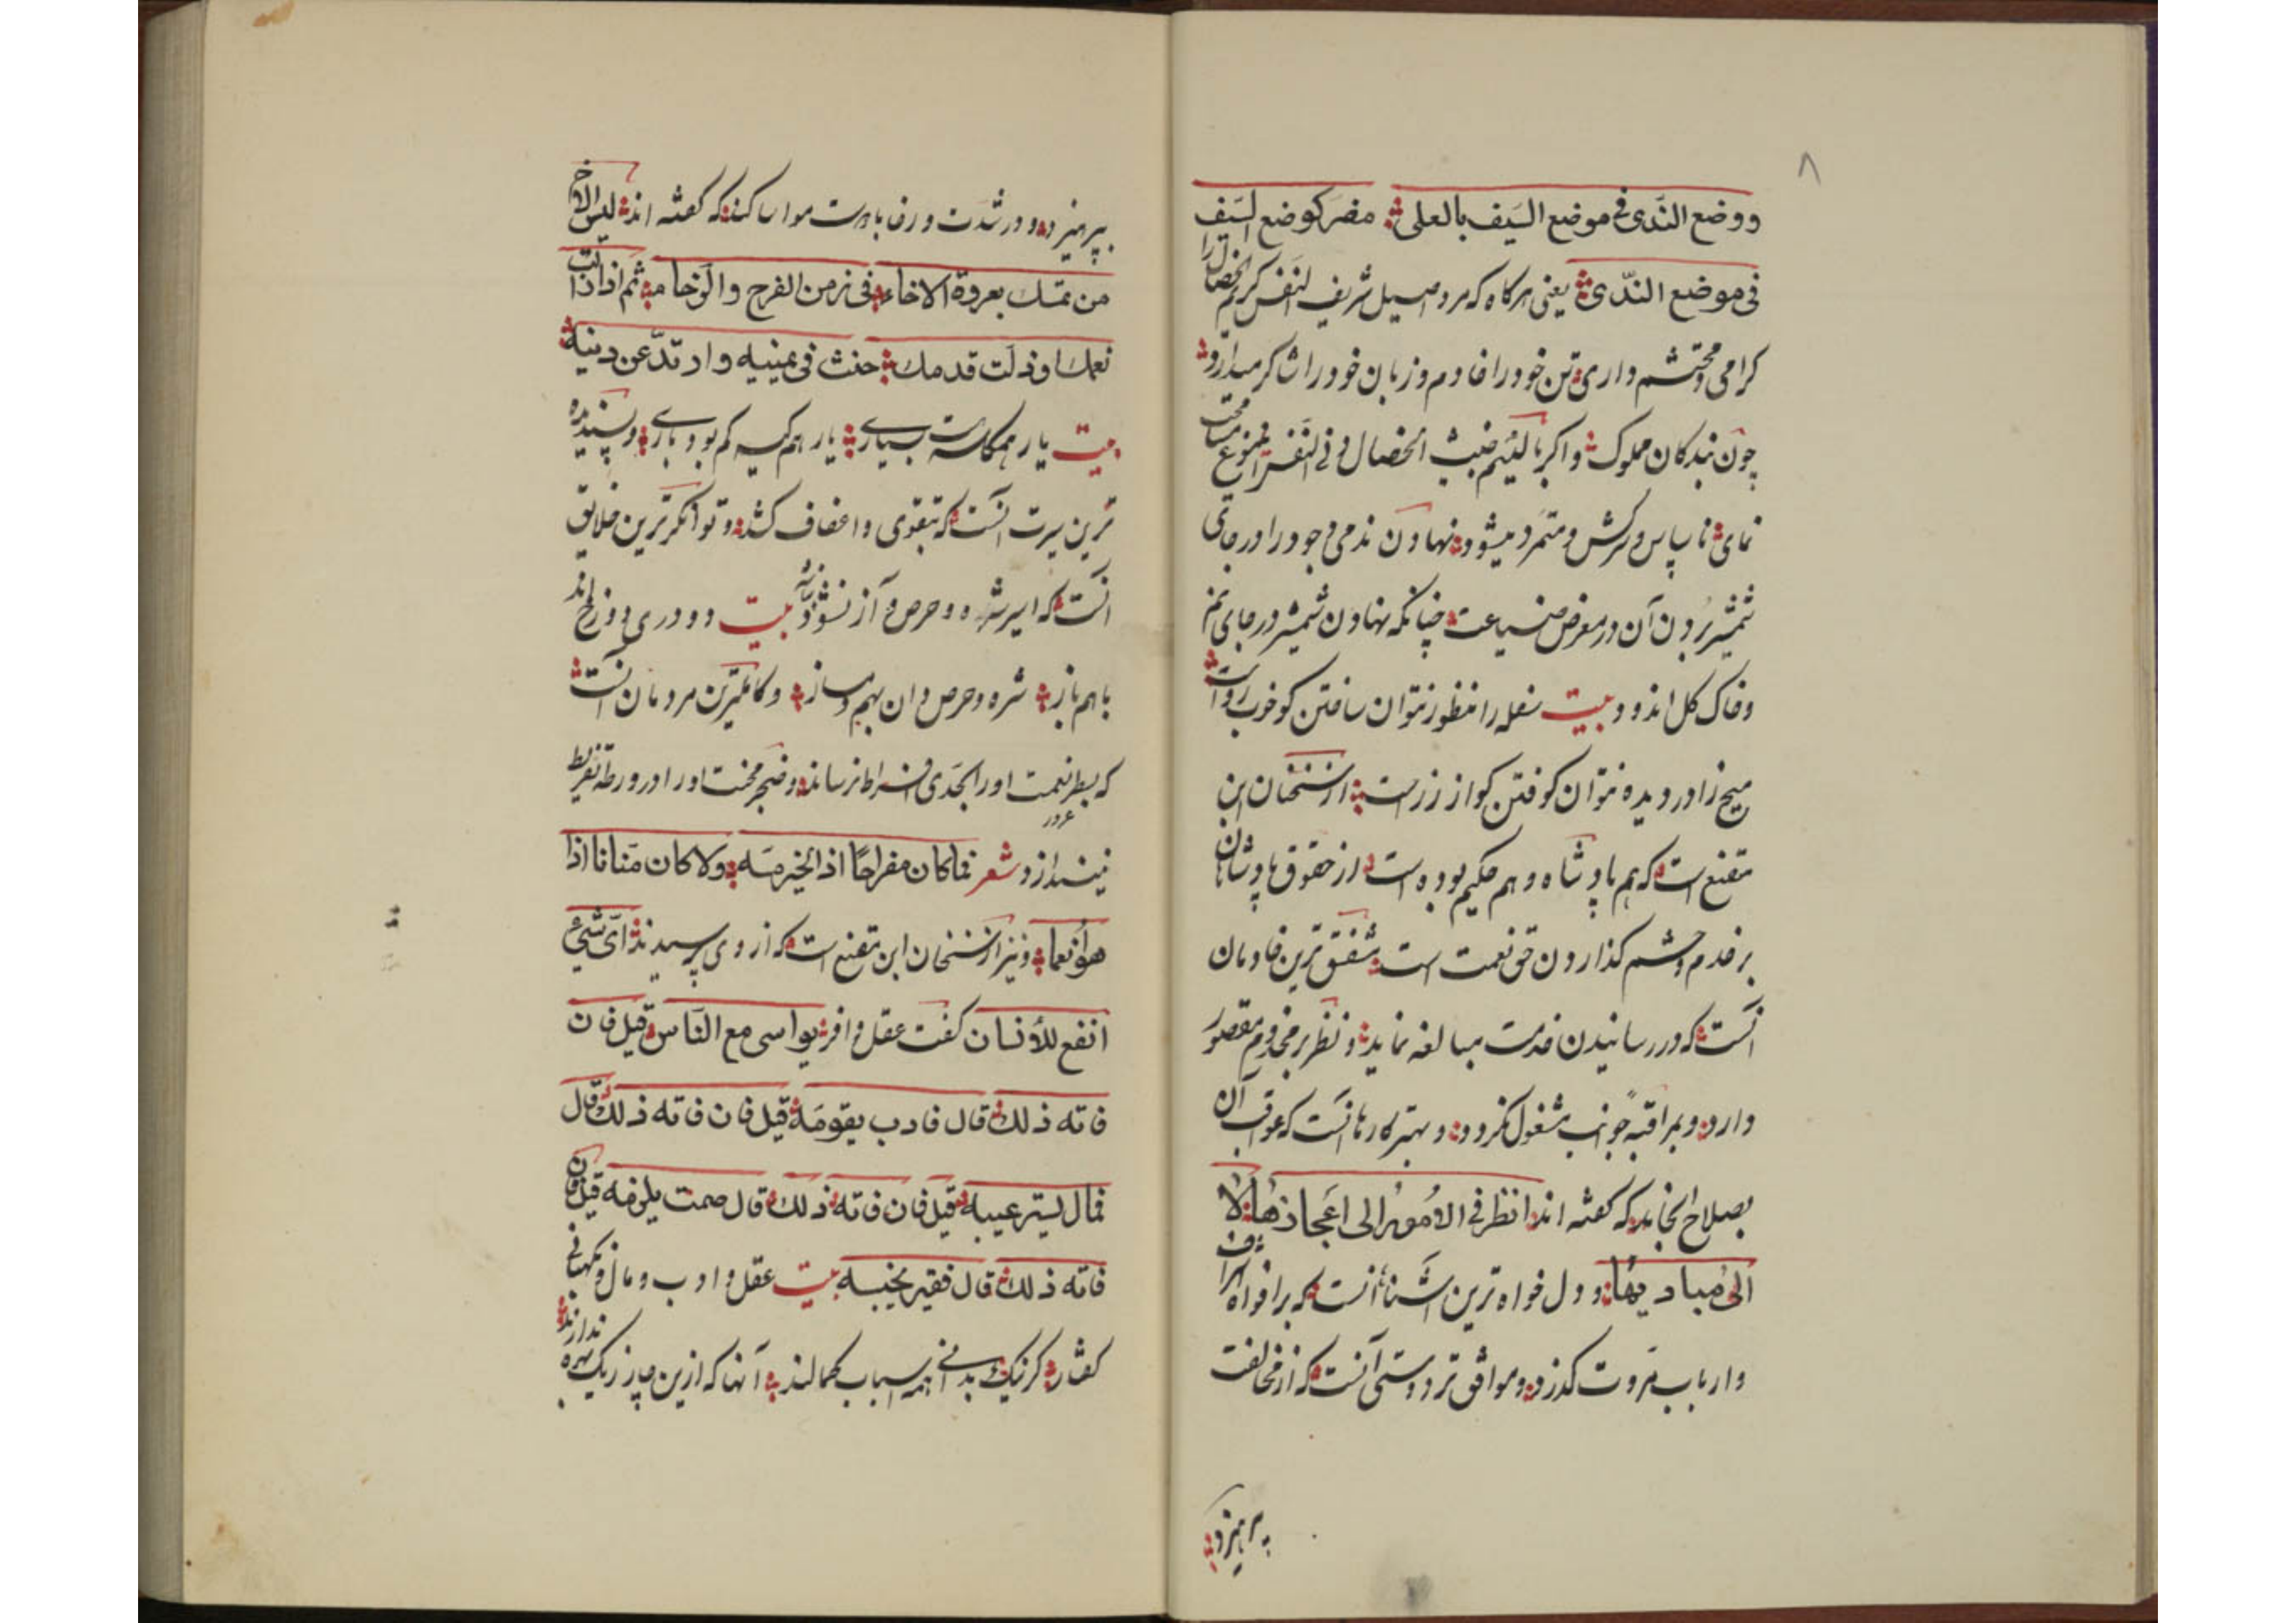 ۸
ووضع الندی فی موضع السیف بالعلی مضر کوضع السیف
فی موضع الندی یعنی هرکاه که مرد اصیل شریف النفس کریم الخصال را
کرامی و محتشم داری تن خود را خادم و زبان خود را شاکر میدارد
چون بندکان مملوک واکر با لئیم خبیث الخصال دنی النفس
نمای ناسپاس و سرکش و متمرد میشود نهادن ندی وجود را در جای
شمشیر بردن آن در معرض ضیاعت چنانکه نهادن شمشیر در جای نم
وخاک کل اندود بیت سفله را منظور نتوان ساختن کو خوب روست
میخ را در دیده نتوان کوفتن کو از زرست از سخنان ابن
مقنع است که هم پادشاه و هم حکیم بوده است از حقوق پادشاهان
بر خدم و حشم کذاردن حق نعمت است مشفق ترین خادمان
آنست که در رسانیدن خدمت مبالغه نماید و نظر بر مخدوم مقصور
دارد و بمراقبه جوانب مشغول نکردد و بهتر کارها آنست که عواقب آن
بصلاح انجامد که کفته اند انظر فی الامور الی اعجازها لا
الی مبادیها و دل خواه ترین ثناها آنست که بر افواه اشراف
وارباب مروت کذرد و موافق تر دوستی آنست که از مخالفت
پرهیزد
بپرهیزد و در شدت و رخا با دوست مواسا کند که کفته اند لیس الاخ
من تمسک بعروة الاخاء فی زمن الفرح والرخا ثم اذا زالت
نعمک او زلت قدمک حنث فی یمینه وارتد عن دینه
بیت یار همکاسه هست بسیاری یار هم کیسه کم بود باری و پسندیده
ترین سیرت آنست که بتقوی و اعفاف کشد و توانکر ترین خلایق
آنست که اسیر شره و حرص و آز نشود بیت دو دری دوزخ اند
باهم باز شره و حرص دان بهم دمساز و کاملترین مردمان آنست
که بطر نعمت او را بحدی افراط نرساند و ضجر محنت او را در ورطه تفریط
نیندازد شعر فما کان مفراحا اذا الخیر مسه ولا کان منانا اذا
هو انعما و نیز از سخنان ابن مقنع است که از وی پرسیدند ای شیء
انفع للأنسان کفت عقل وافر یواسی مع الناس قیل فان
فاته ذلک قال فادب یقومه قیل فان فاته ذلک قال
فمال یستر عیبه قیل فان فاته ذلک قال صمت یلزمه قیل فان
فاته ذلک قال فقیر یخیبه بیت عقل و ادب و مال و
کفتار کر نیک بدانی همه اسباب کمالند آنها که ازین چار ز یک بهره ندارند